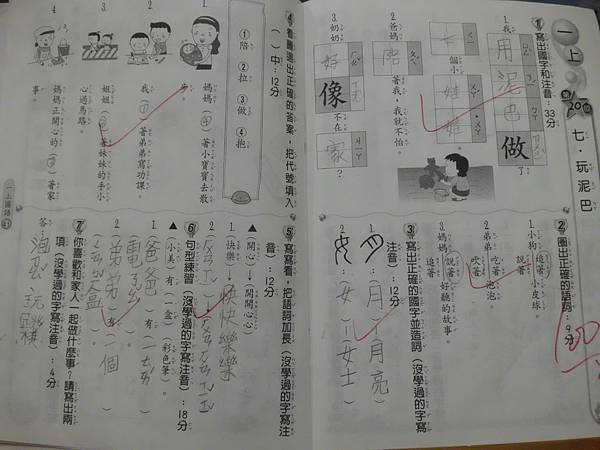 一上
200
七、玩泥巴
1 寫出國字和注音：33分
1. 我用泥巴做了
一個小娃娃。
2. 爸爸陪著我，我就不怕。
3. 奶奶好像不在家？
2 圈出正確的語詞：9分
1. 小狗 追著 說著 皮球。
2. 弟弟 吃著 吹著 泡泡。
3. 媽媽 說著 追著 好聽的故事。
3 寫出正確的國字並造詞（沒學過的字寫注音）：12分
1. 月：月（月亮）
2. 女：女（女士）
100
4 看圖選出正確的答案，把代號填入（ ）中：12分
①陪 ②拉 ③做 ④抱
1. 媽媽（④）著小寶寶去散步。
2. 我（①）著弟弟寫功課。
3. 姐姐（②）著妹妹的手小心過馬路。
4. 媽媽正開心的（③）著家事。
5 寫寫看，把語詞加長（沒學過的字寫注音）：12分
▲開心→（開開心心）
1. 快樂→（快快樂樂）
2.
6 句型練習（沒學過的字寫注音）：18分
▲（小美）有一盒（彩色筆）。
1. （爸爸）有一
2. （弟弟）有一個
7 你喜歡和家人一起做什麼事？請寫出兩項（沒學過的字寫注音）：4分
答：
一上國語